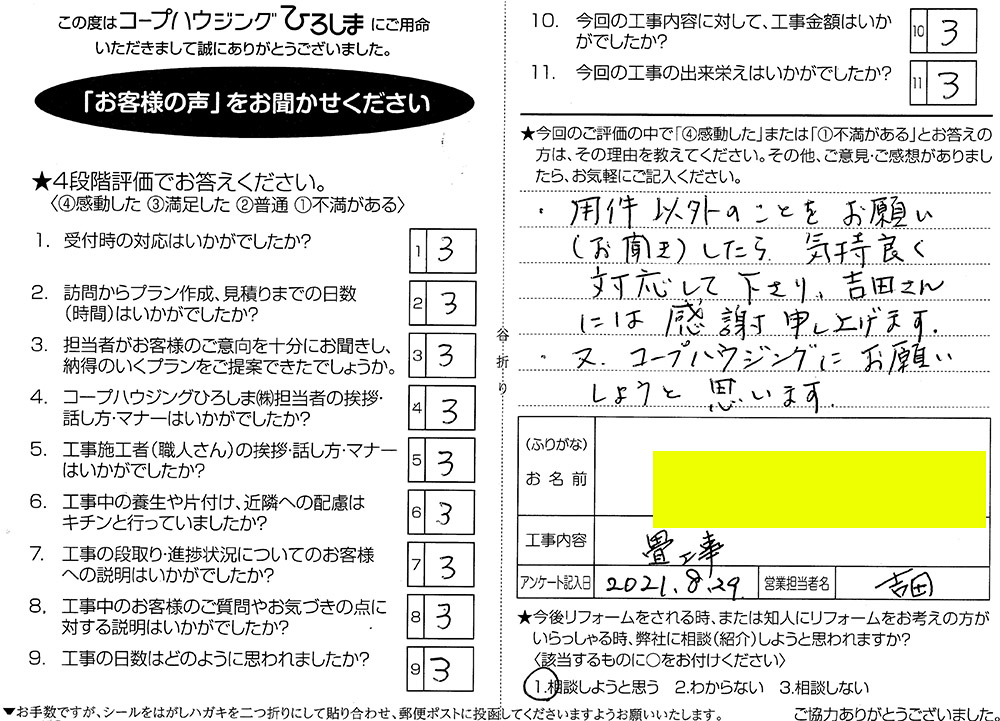 この度はコープハウジングひろしまにご用命
いただきまして誠にありがとうございました。
「お客様の声」をお聞かせください
★4段階評価でお答えください。
〈④感動した ③満足した ②普通 ①不満がある〉
1. 受付時の対応はいかがでしたか?
1 3
2. 訪問からプラン作成、見積りまでの日数
(時間)はいかがでしたか?
2 3
3. 担当者がお客様のご意向を十分にお聞きし、
納得のいくプランをご提案できたでしょうか。
3 3
4. コープハウジングひろしま㈱担当者の挨拶・
話し方・マナーはいかがでしたか?
4 3
5. 工事施工者(職人さん)の挨拶・話し方・マナー
はいかがでしたか?
5 3
6. 工事中の養生や片付け、近隣への配慮は
キチンと行っていましたか?
6 3
7. 工事の段取り・進捗状況についてのお客様
への説明はいかがでしたか?
7 3
8. 工事中のお客様のご質問やお気づきの点に
対する説明はいかがでしたか?
8 3
9. 工事の日数はどのように思われましたか?
9 3
▼お手数ですが、シールをはがしハガキを二つ折りにして貼り合わせ、郵便ポストに投函してくださいますようお願いいたします。
谷折り
10. 今回の工事内容に対して、工事金額はいか
がでしたか?
10 3
11. 今回の工事の出来栄えはいかがでしたか?
11 3
★今回のご評価の中で「④感動した」または「①不満がある」とお答えの
方は、その理由を教えてください。その他、ご意見・ご感想がありまし
たら、お気軽にご記入ください。
・用件以外のことをお願い
(お聞き)したら 気持良く
対応して下さり、吉田さん
には感謝申し上げます.
・又、コープハウジングにお願い
しようと思います.
(ふりがな)
お名前
工事内容 畳工事
アンケート記入日 2021.8.29 営業担当者名 吉田
★今後リフォームをされる時、または知人にリフォームをお考えの方が
いらっしゃる時、弊社に相談(紹介)しようと思われますか?
〈該当するものに○をお付けください〉
1.相談しようと思う 2.わからない 3.相談しない
ご協力ありがとうございました。